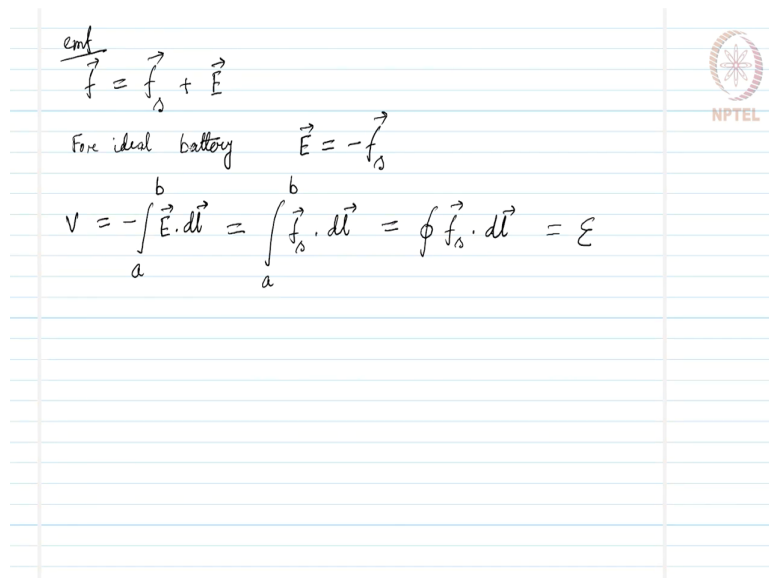 emf
f⃗ = f⃗ₛ + E⃗
For ideal battery E⃗ = -f⃗ₛ
V = -∫ₐᵇ E⃗.dl⃗ = ∫ₐᵇ f⃗ₛ.dl⃗ = ∮ f⃗ₛ.dl⃗ = ℰ
NPTEL